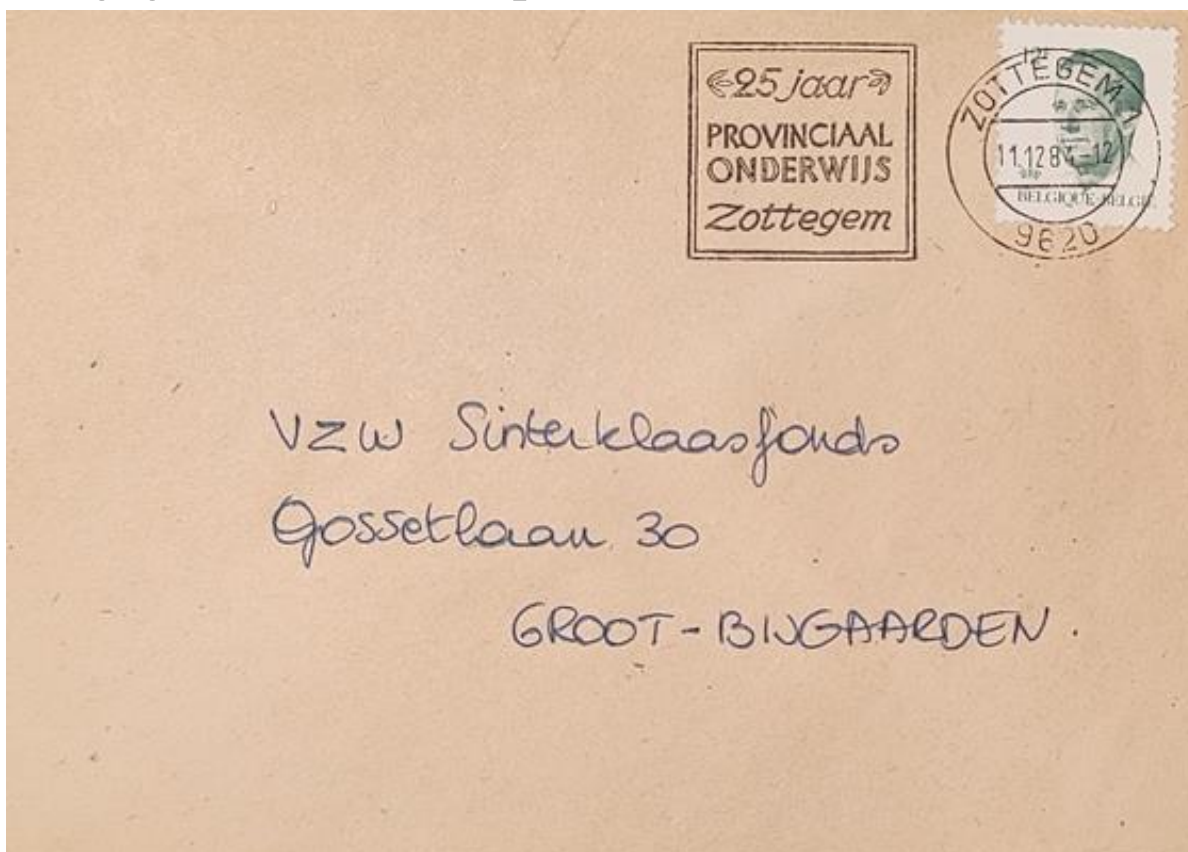 25 jaar
PROVINCIAAL
ONDERWIJS
Zottegem
ZOTTEGEM 1
11.12.84-12
9620
12F
BELGIQUE-BELGIË
VZW Sinterklaasfonds
Gossetlaan 30
GROOT-BIJGAARDEN.